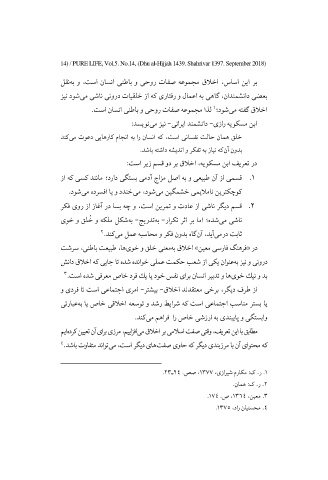 14) / PURE LIFE, Vol.5. No.14, (Dhu al-Hijjah 1439. Shahrivar 1397. September 2018)
بر این اساس، اخلاق مجموعه صفات روحی و باطنی انسان است، و به‌نقل
بعضی دانشمندان، گاهی به اعمال و رفتاری که از خلقیات درونی ناشی می‌شود نیز
اخلاق گفته می‌شود؛¹ لذا مجموعه صفات روحی و باطنی انسان است.
ابن مسکویه رازی- دانشمند ایرانی- نیز می‌نویسد:
خلق همان حالت نفسانی است، که انسان را به انجام کارهایی دعوت می‌کند
بدون آن‌که نیاز به تفکر و اندیشه داشته باشد.
در تعریف ابن مسکویه، اخلاق بر دو قسم زیر است:
۱. قسمی از آن طبیعی و به اصل مزاج آدمی بستگی دارد؛ مانند کسی که از
کوچکترین ناملایمی خشمگین می‌شود، می‌خندد و یا افسرده می‌شود.
۲. قسم دیگر ناشی از عادت و تمرین است، و چه بسا در آغاز از روی فکر
ناشی می‌شده؛ اما بر اثر تکرار- به‌تدریج- به‌شکل ملکه و خُلق و خوی
ثابت درمی‌آید، آن‌گاه بدون فکر و محاسبه عمل می‌کند.²
در «فرهنگ فارسی معین» اخلاق به‌معنی خلق و خوی‌ها، طبیعت باطنی، سرشت
درونی و نیز به‌عنوان یکی از شعب حکمت عملی خوانده شده تا جایی که اخلاق دانش
بد و نیك خوی‌ها و تدبیر انسان برای نفس خود یا یك فرد خاص معرفی شده است.³
از طرف دیگر، برخی معتقدند اخلاق- بیشتر- امری اجتماعی است تا فردی و
یا بستر مناسب اجتماعی است که شرایط رشد و توسعه اخلاقی خاص یا به‌عبارتی
وابستگی و پایبندی به ارزشی خاص را فراهم می‌کند.
مطابق با این تعریف، وقتی صفت اسلامی بر اخلاق می‌افزاییم، مرزی برای آن تعیین کرده‌ایم
که محتوای آن با مرزبندی دیگر که حاوی صفت‌های دیگر است، می‌تواند متفاوت باشد.⁴
۱. ر. ک: مکارم شیرازی، ۱۳۷۷، صص. ۲۴ـ۲۳.
۲. ر. ک: همان.
۳. معین، ۱۳٦٤، ص. ۱۷٤.
٤. محسنیان راد، ۱۳۷۵.